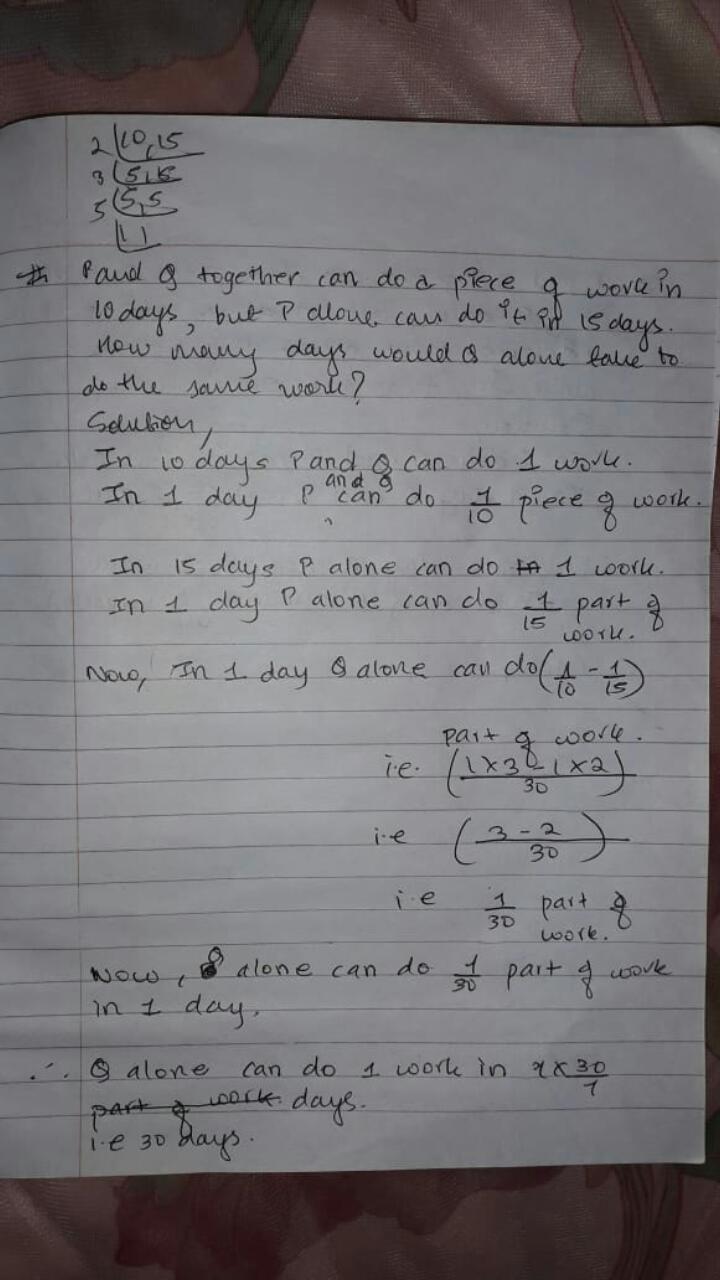 2 | 10, 15
3 | 5, 15
5 | 5, 5
1 1
# P and Q together can do a piece of work in
10 days, but P alone can do it in 15 days.
How many days would Q alone take to
do the same work?
Solution,
In 10 days P and Q can do 1 work.
In 1 day P and Q can do 1/10 piece of work.
In 15 days P alone can do 1 work.
In 1 day P alone can do 1/15 part of
work.
Now, In 1 day Q alone can do (1/10 - 1/15)
part of work.
i.e. (1×3 - 1×2)/30
i.e (3 - 2)/30
i.e 1/30 part of
work.
Now, Q alone can do 1/30 part of work
in 1 day.
∴ Q alone can do 1 work in 1 × 30/1
part of work days.
i.e 30 days.